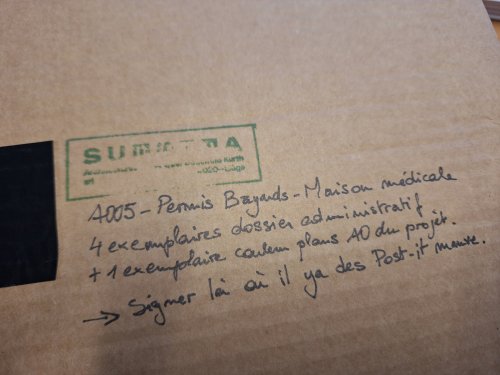 Godefroid Kurth
4020-Liège
A005 - Permis Bayards - Maison médicale
4 exemplaires dossier administratif
+ 1 exemplaire couleur plans A0 du projet.
→ Signer là où il y a des Post-it mauve.